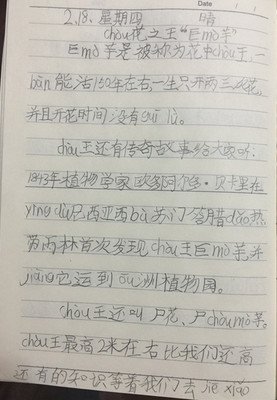 Date
2.18. 星期四 晴
chòu花之王“巨mó芋”
巨mó芋是被称为花中chòu王,一
bān能活150年左右,一生只开两三次花,
并且开花时间没有guī lǜ。
chòu王还有传奇故事给大家听:
1843年植物学家欧多阿尔多·贝卡里在
yìng dù尼西亚西bù苏门答腊dǎo热
带雨林首次发现chòu王巨mó芋并
jiāng它运到ōu洲植物园。
chòu王还叫尸花,尸chòu mó芋。
chòu王最高2米左右比我们还高
还有的知识等着我们去